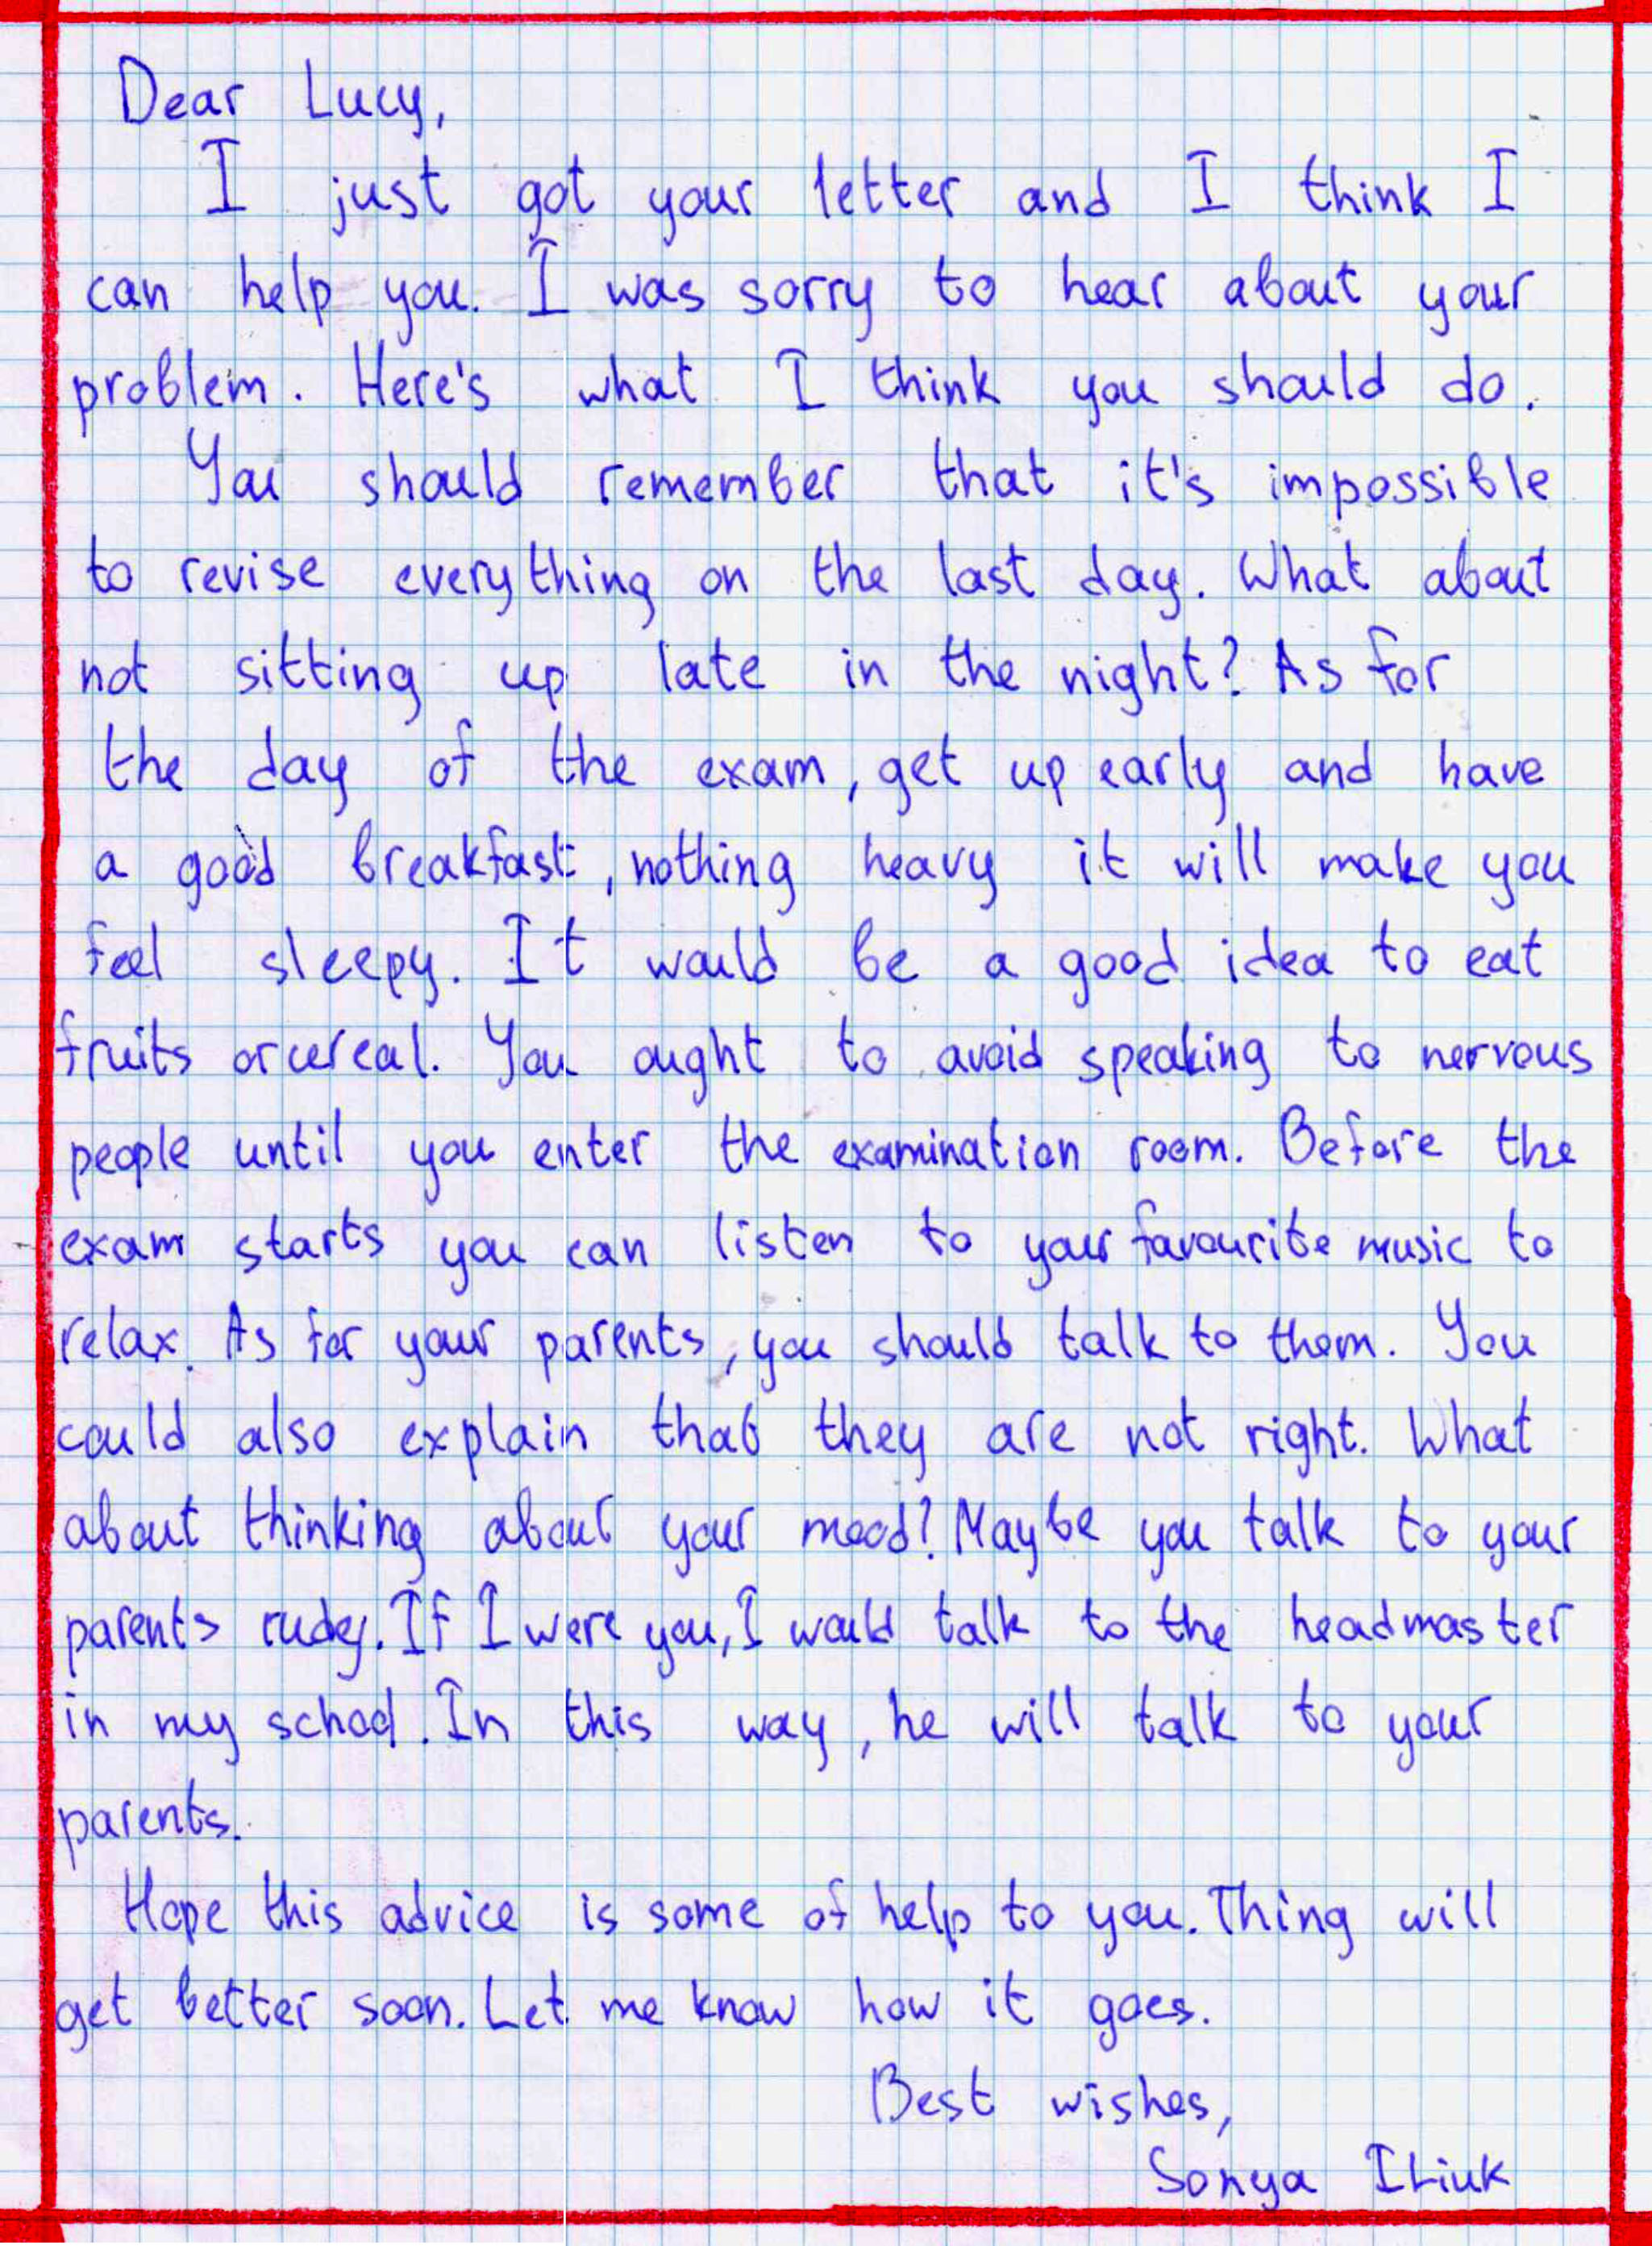 Dear Lucy,
I just got your letter and I think I
can help you. I was sorry to hear about your
problem. Here's what I think you should do.
You should remember that it's impossible
to revise everything on the last day. What about
not sitting up late in the night? As for
the day of the exam, get up early and have
a good breakfast, nothing heavy it will make you
feel sleepy. It would be a good idea to eat
fruits or cereal. You ought to avoid speaking to nervous
people until you enter the examination room. Before the
exam starts you can listen to your favourite music to
relax. As for your parents, you should talk to them. You
could also explain that they are not right. What
about thinking about your mood? Maybe you talk to your
parents rudey. If I were you, I would talk to the headmaster
in my school. In this way, he will talk to your
parents.
Hope this advice is some of help to you. Thing will
get better soon. Let me know how it goes.
Best wishes,
Sonya